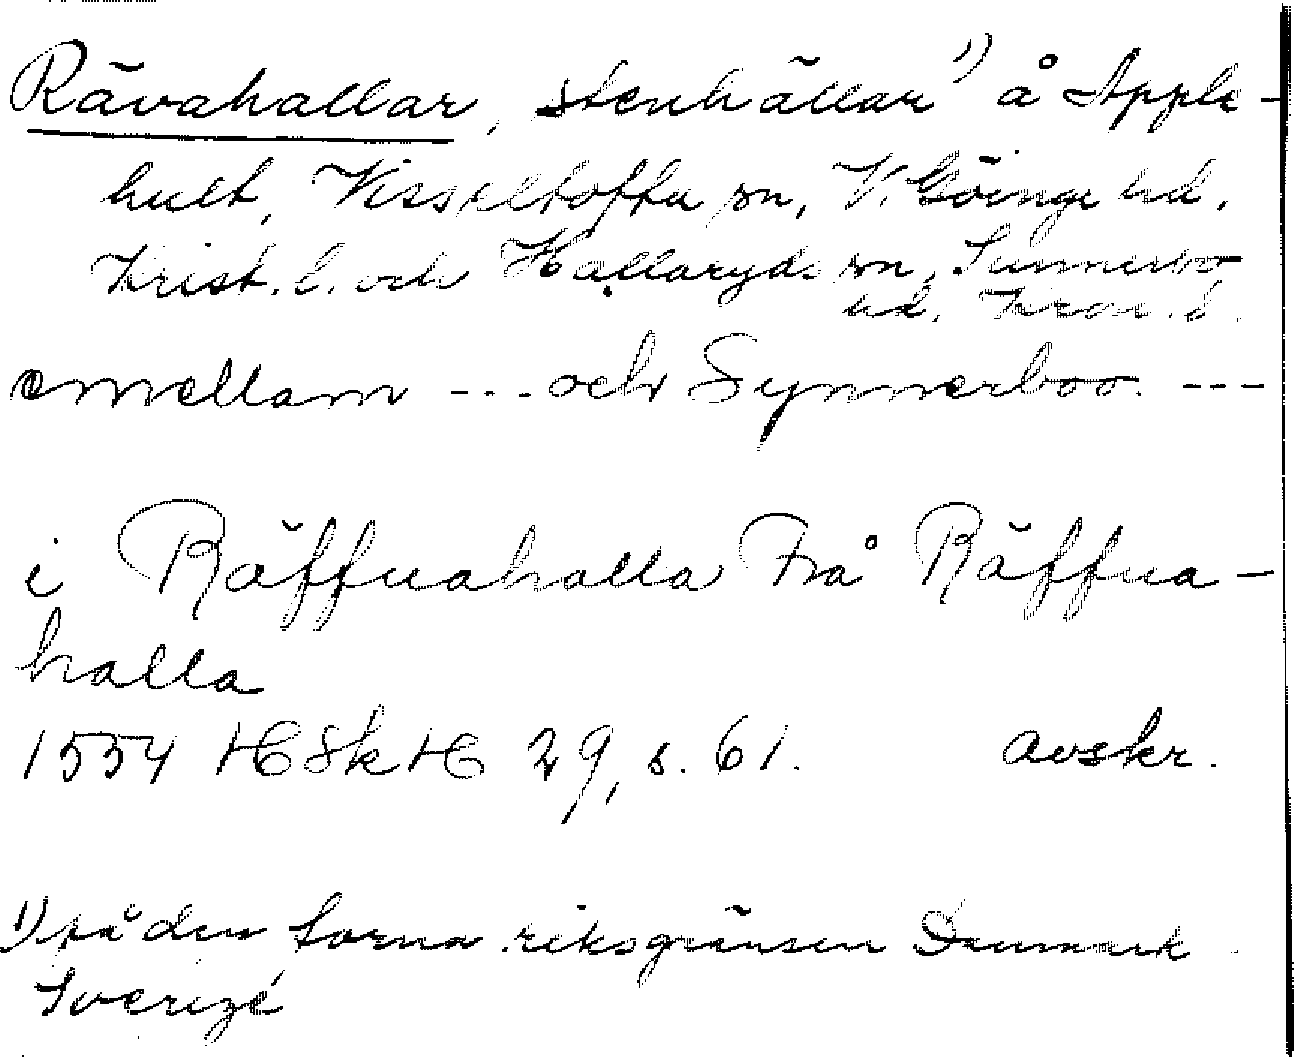 Rävahallar, stenhällar 1) å Apple-
hult, Visseltofta sn, V. Göinge hd,
Krist. l. och Hallaryds sn, Sunnerbo
hd, Kron. l.
emellam --- och Synnerboo. ---
i Räffuahalla Frå Räffua-
halla
1554 HSkH 29, s. 61. avskr.
1) på den forna riksgränsen Danmark -
Sverige